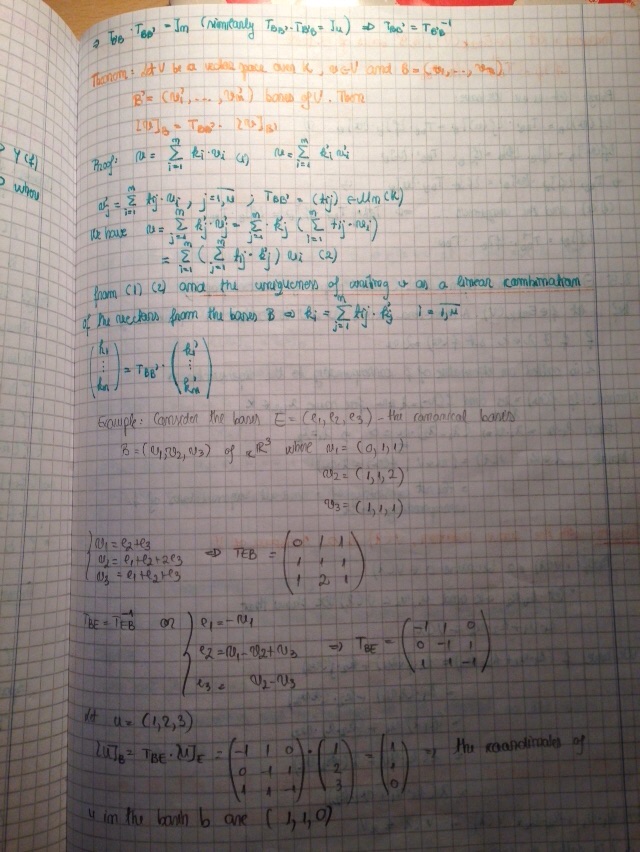 ⇒ T_B'B · T_BB' = I_n (similarly T_BB' · T_B'B = I_n) ⇒ T_BB' = T_B'B^-1
Theorem: Let V be a vector space over K, v∈V and B = (v1, ..., vn),
B' = (v1', ..., vn') bases of V. Then
[v]_B = T_BB' · [v]_B'
→ Y (f)
Proof: v = Σ_{i=1}^n ki · vi (1) v = Σ_{i=1}^n ki' vi'
→ whou
vj' = Σ_{i=1}^n tij · vi, j = 1,n ; T_BB' = (tij) ∈ Mn (K)
We have v = Σ_{j=1}^n kj' · vj' = Σ_{j=1}^n kj' (Σ_{i=1}^n tij · vi)
= Σ_{i=1}^n (Σ_{j=1}^n tij · kj') vi (2)
from (1) (2) and the uniqueness of writing v as a linear combination
of the vectors from the bases B ⇒ ki = Σ_{j=1}^n tij · kj' i = 1,n
(k1 ⋮ kn) = T_BB' · (k1' ⋮ kn')
Example: Consider the bases E = (e1, e2, e3) - the canonical bases
B = (v1, v2, v3) of R^3 where v1 = (0, 1, 1)
v2 = (1, 1, 2)
v3 = (1, 1, 1)
v1 = e2 + e3
v2 = e1 + e2 + 2e3 ⇒ T_EB = (0 1 1 / 1 1 1 / 1 2 1)
v3 = e1 + e2 + e3
T_BE = T_EB^-1 or e1 = -v1
e2 = v1 - v2 + v3 ⇒ T_BE = (-1 1 0 / 0 -1 1 / 1 1 -1)
e3 = v2 - v3
Let u = (1, 2, 3)
[u]_B = T_BE · [u]_E = (-1 1 0 / 0 -1 1 / 1 1 -1) · (1 2 3) = (1 1 0) ⇒ the coordinates of
u in the basis b are (1, 1, 0)